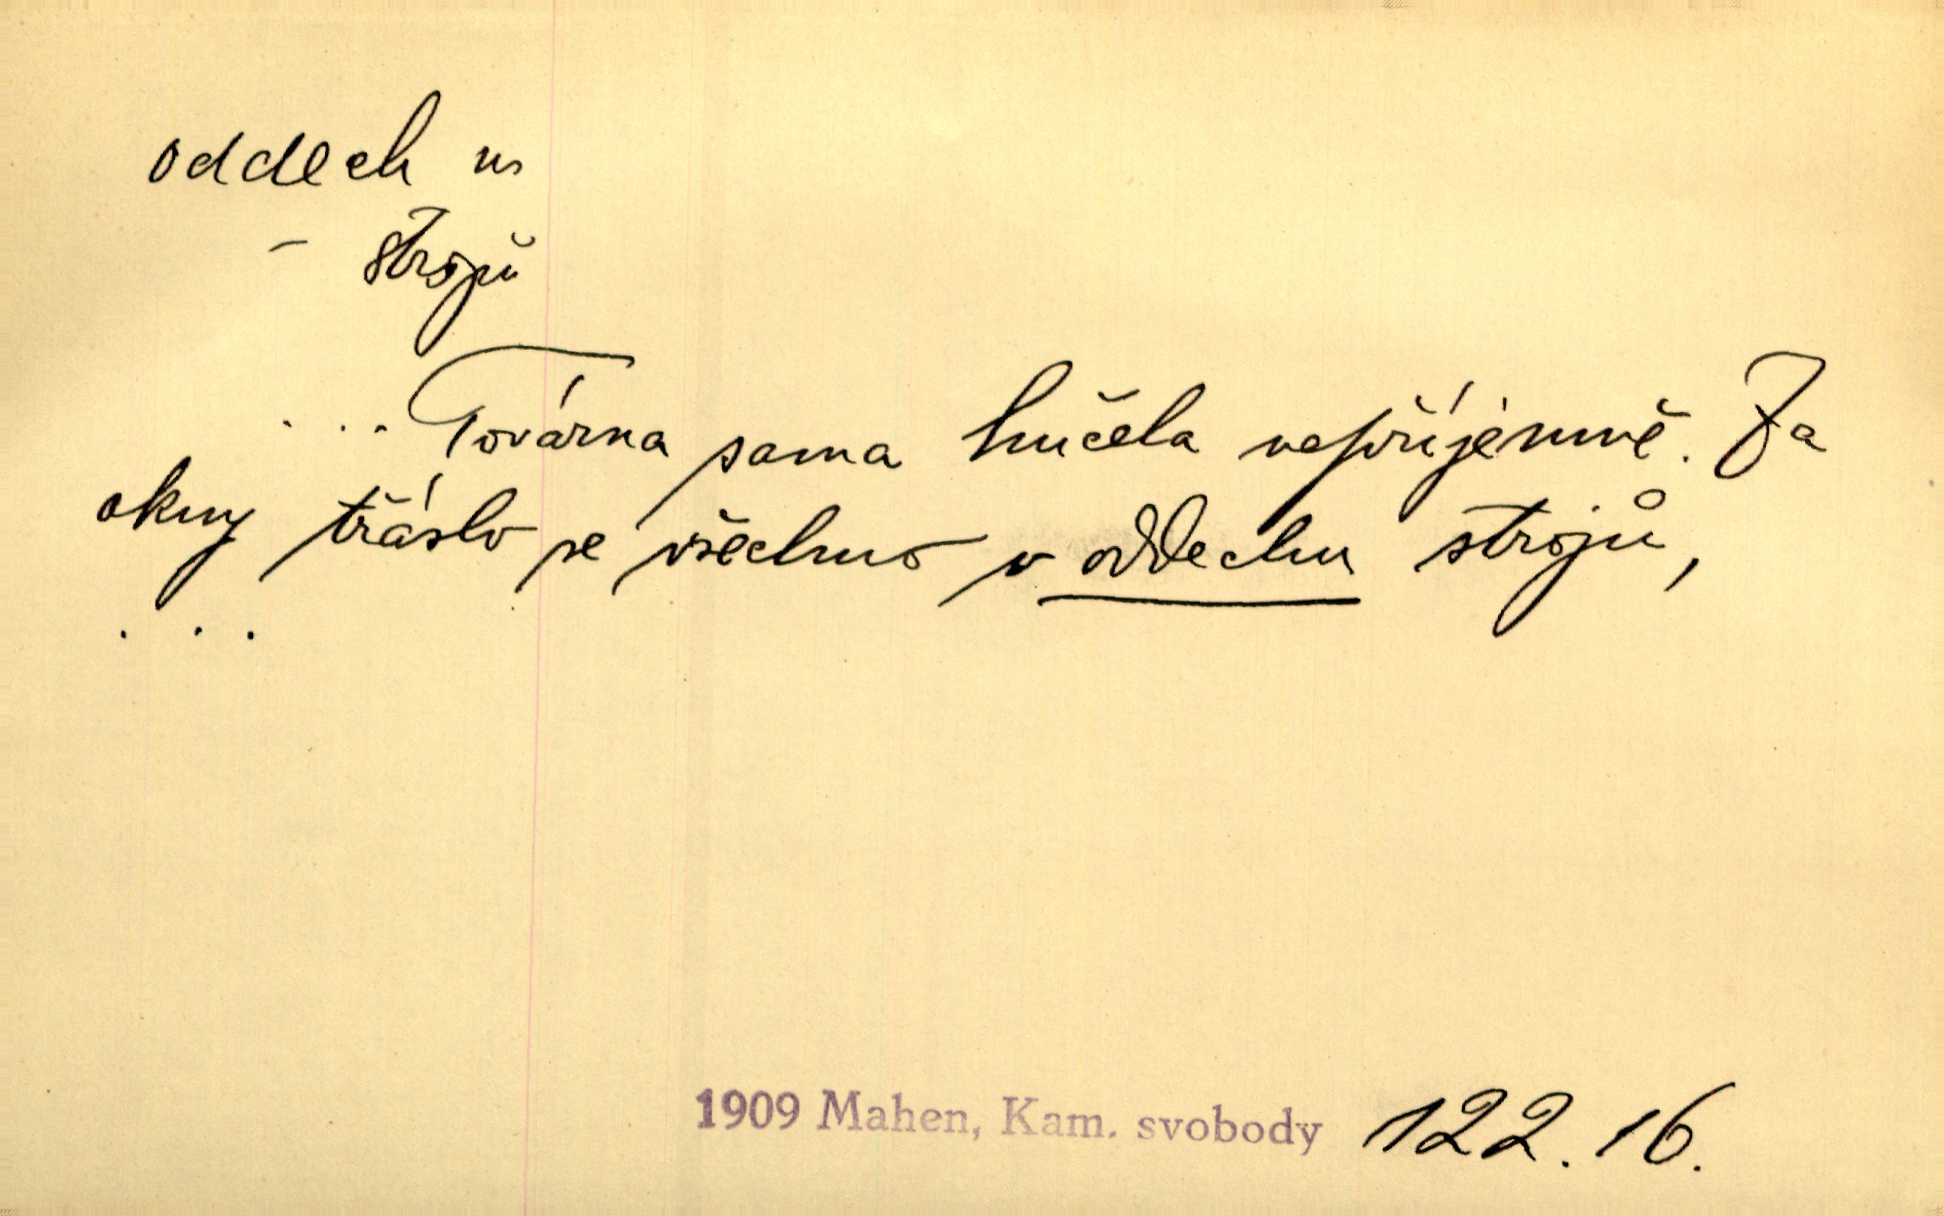 oddech m
- strojů
... Továrna sama hučela nepříjemně. Za
okny třáslo se všechno v oddechu strojů,
...
1909 Mahen, Kam. svobody 122.16.